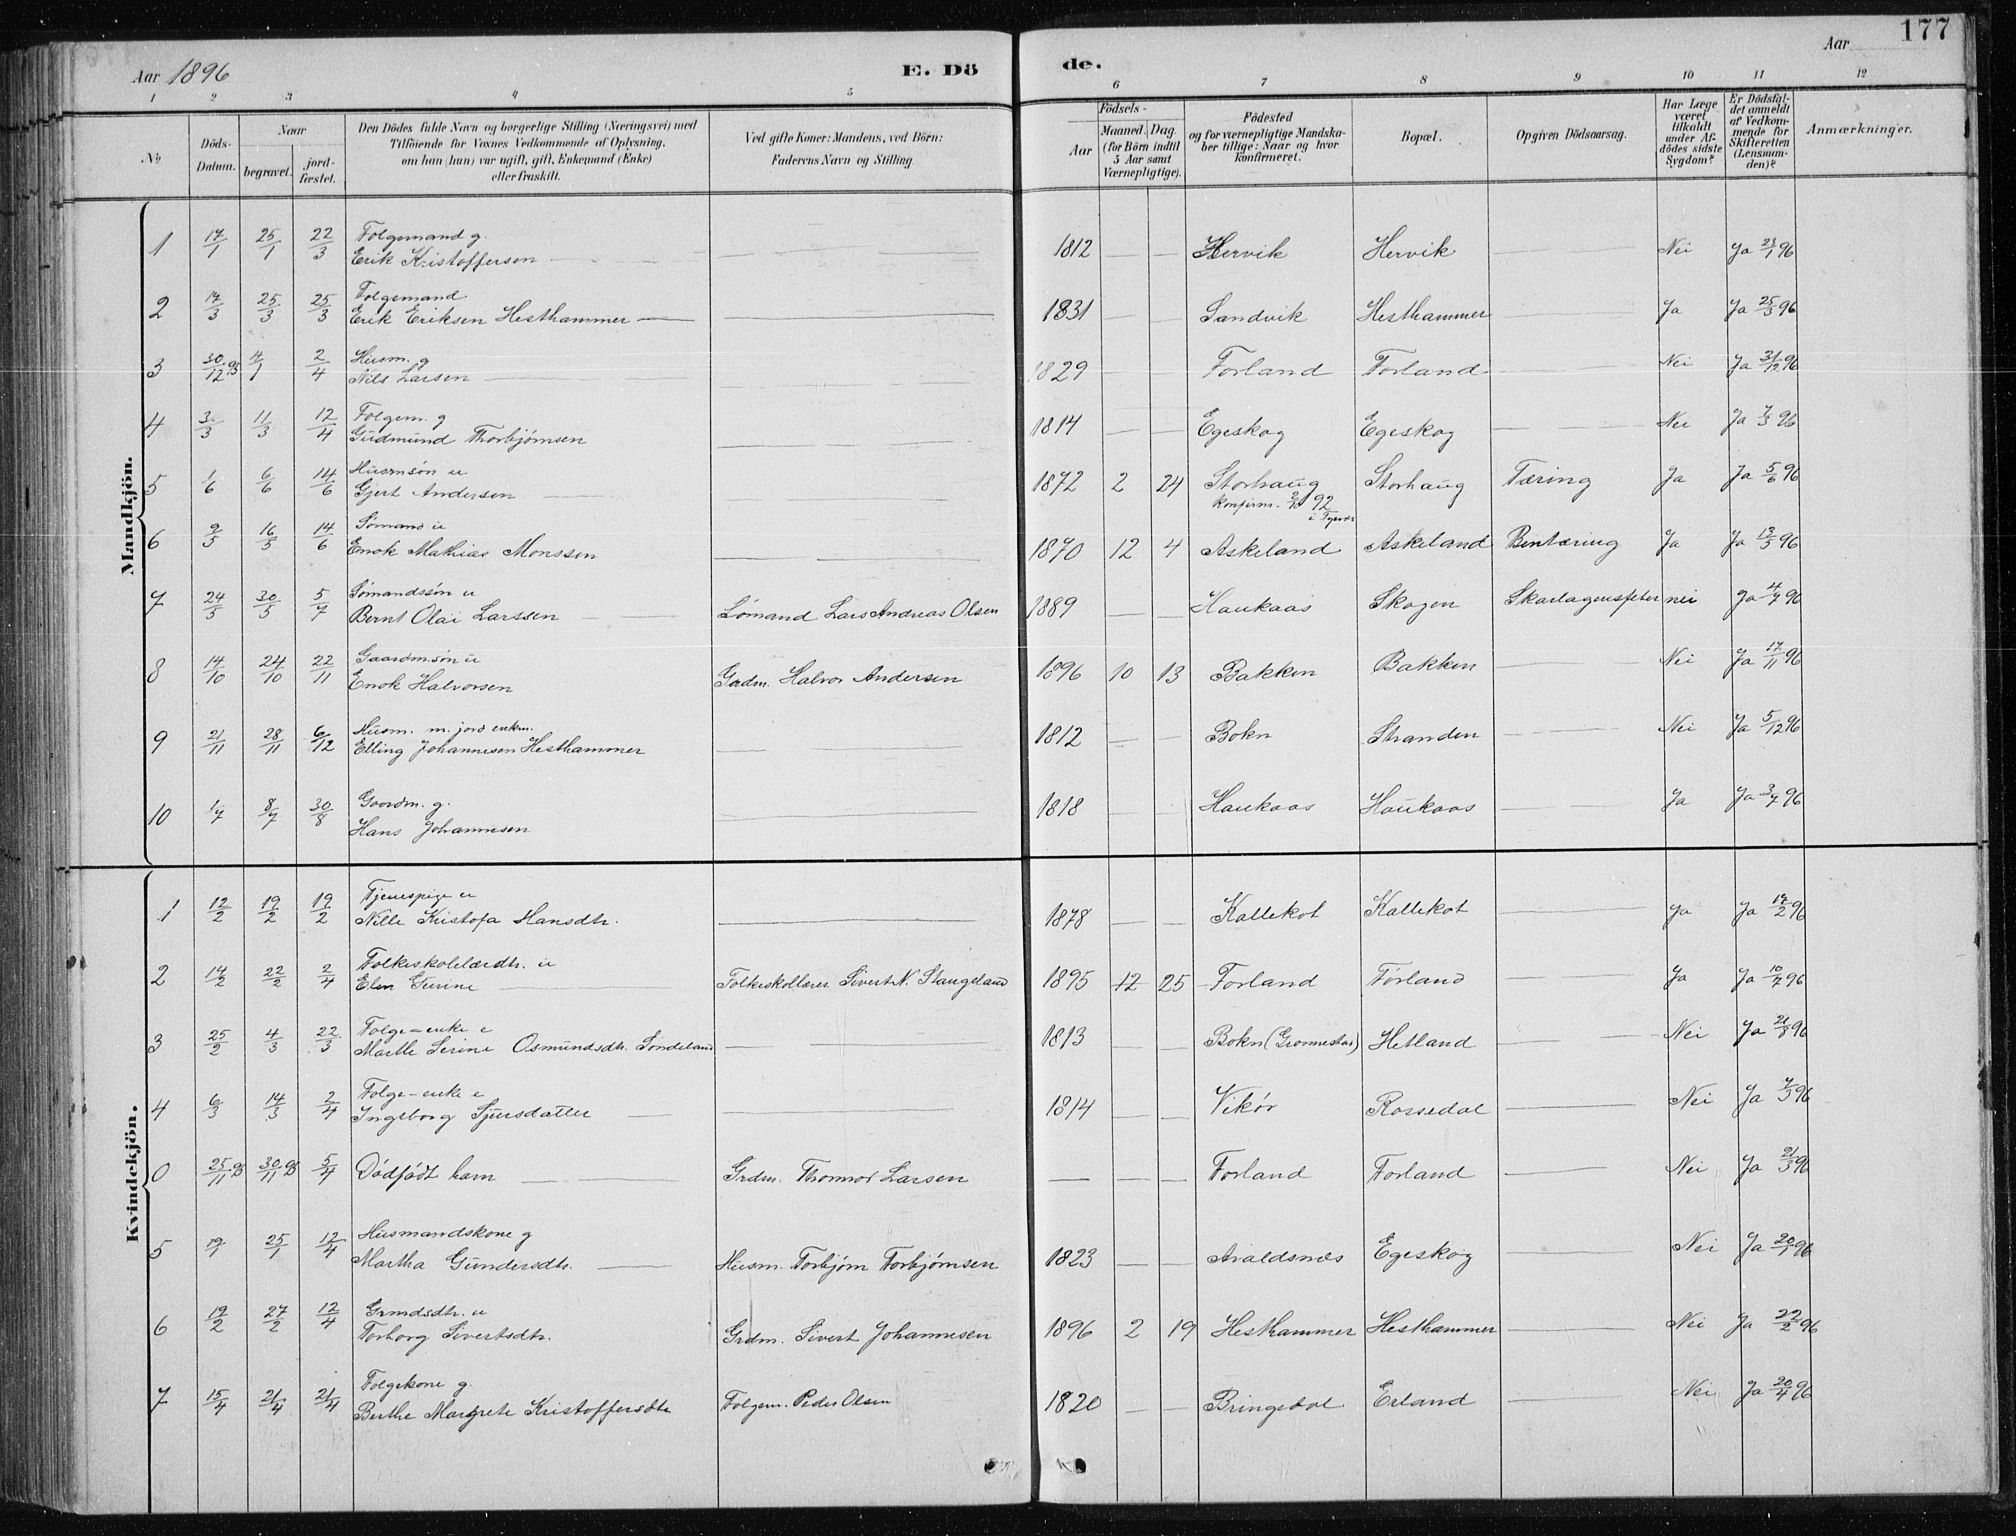 177
Aar 1896
E. Dö
de.
Aar
1 2 3 4 5 6 7 8 9 10 11 12
No
Döds-Datum.
Naar
begravet.
jord-fæstet.
Den Dödes fulde Navn og borgerlige Stilling (Næringsvei) med
Tilföiende for Voxnes Vedkommende af Oplysning.
om han (hun) var ugift, gift, Enkemand (Enke)
eller fraskilt.
Ved gifte Koner: Mandens, ved Börn:
Faderens Navn og Stilling.
Födsels-
Aar
Maaned. Dag.
(for Börn indtil
5 Aar samt
Værnepligtige).
Födested
og for værnepligtige Mandska-
ber tillige: Naar og hvor
konfirmeret.
Bopæl.
Opgiven Dödsaarsag.
Har Læge
været
tilkaldt
under Af-
dödes sidste
Sygdom?
Er Dödsfal-
det anmeldt
af Vedkom-
mende for
Skifteretten
(Lensman-
den)?
Anmærkninger.
Mandkjön.
Folgemand g.
1 17/1 25/1 22/3 Erik Kristoffersen 1812 Hervik Hervik Nei Ja 23/1 96
Folgemand
2 17/3 25/3 25/3 Erik Eriksen Hesthammer 1831 Sandvik Hesthammer Ja Ja 25/3 96
Husm. g
3 30/12 95 4/1 2/4 Nils Larsen 1829 Forland Forland Nei Ja 31/12 96
Folgem. g
4 3/3 11/3 12/4 Gudmund Thorbjørnsen 1814 Egeskog Egeskog Nei Ja 7/3 96
Husmsøn u
5 1/6 6/6 14/6 Gjert Andersen 1872 2 24 Storhaug Storhaug Tæring Ja Ja 5/6 96
konfirm. 92
i Tysvær
Sømand u
6 9/5 16/5 14/6 Enok Mathias Monssen 1870 12 4 Askeland Askeland Bentæring Ja Ja 13/5 96
Sømandssøn u
7 24/5 30/5 5/7 Bernt Olai Larssen Sømand Lars Andreas Olsen 1889 Haukaas Skogen Skarlagensfeber nei Ja 4/7 96
Gaardmsøn u
8 14/10 24/10 22/11 Enok Halvorsen Gaardm. Halvor Andersen 1896 10 13 Bakken Bakken Nei Ja 17/11 96
Husm. m. jord enkm.
9 21/11 28/11 6/12 Elling Johannesen Hesthammer 1812 Bokn Stranden Nei Ja 5/12 96
Gaardm. g.
10 1/7 8/7 30/8 Hans Johannesen 1818 Haukaas Haukaas Ja Ja 3/7 96
Kvindekjön.
Tjenespige u
1 12/2 19/2 19/2 Nille Kristofa Hansdtr. 1878 Kallekot Kallekot Ja Ja 17/2 96
Folkeskolelærdtr. u
2 14/2 22/2 2/4 Elen Surine Folkeskollærer Sivert N. Stangeland 1895 12 25 Forland Førland Ja Ja 10/4 96
Folge-enke e
3 25/2 4/3 22/3 Marthe Serine Osmundsdtr. Søndeland 1813 Bokn (Gronnestad) Hetland Nei Ja 96
Folge-enke e
4 6/3 14/3 2/4 Ingeborg Sjursdatter 1814 Vikør Rossedal Nei Ja 7/3 96
0 25/11 95 30/11 95 5/4 Dødfødt barn Grdm. Thormod Larsen Forland Forland Nei Ja 21/3 96
Husmandskone g
5 19/1 25/1 12/4 Martha Gundersdtr. Husm. Torbjørn Torbjørnsen 1823 Avaldsnæs Egeskog Nei Ja 20/1 96
Grmdsdtr. u
6 19/2 27/2 12/4 Torborg Sivertsdtr. Grdm. Sivert Johannesen 1896 2 19 Hesthammer Hesthammer Nei Ja 22/2 96
Folgekone g.
7 15/4 21/4 21/4 Berthe Margrete Kristoffersdtr Folgem. Peder Olsen 1820 Bringedal Erland Nei Ja 20/4 96